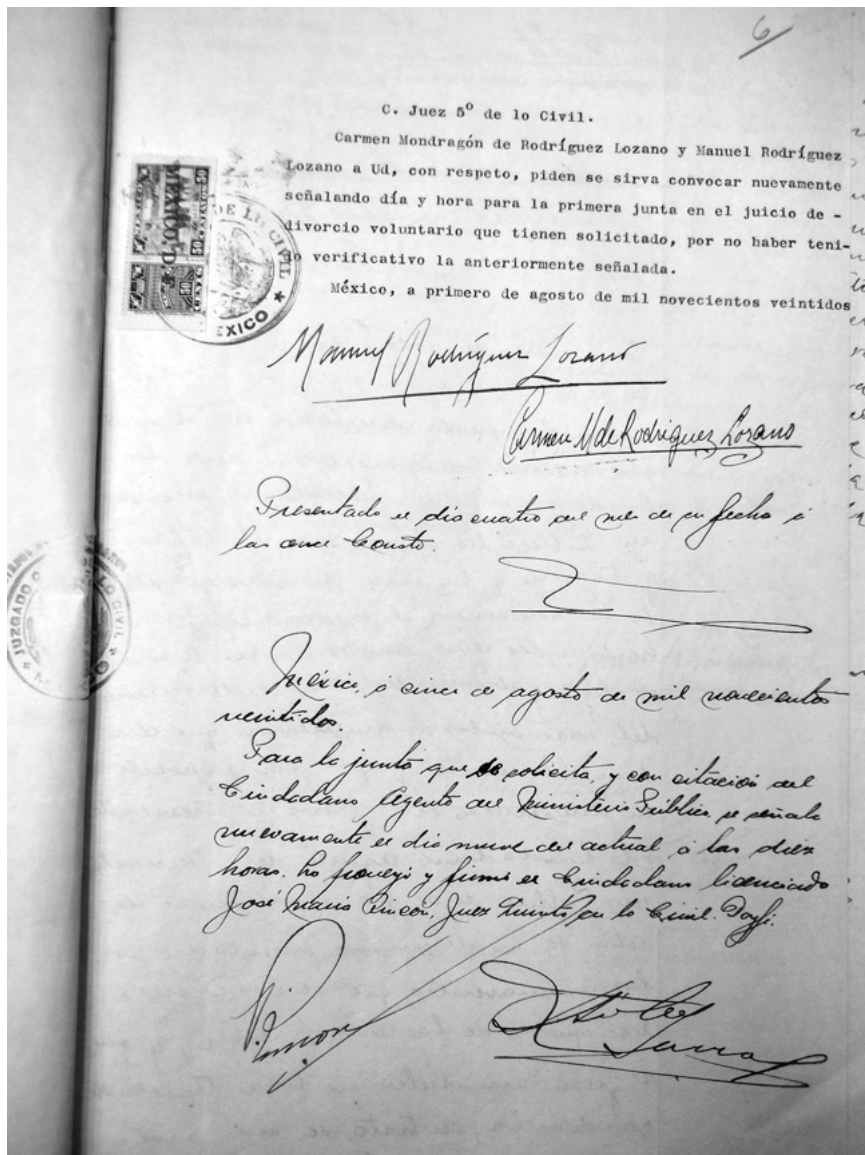 6
C. Juez 5º de lo Civil.
Carmen Mondragón de Rodríguez Lozano y Manuel Rodríguez
Lozano a Ud, con respeto, piden se sirva convocar nuevamente
señalando día y hora para la primera junta en el juicio de -
divorcio voluntario que tienen solicitado, por no haber teni-
do verificativo la anteriormente señalada.
México, a primero de agosto de mil novecientos veintidos
MEXICO, D. F.
DE LO CIVIL
MEXICO
Manuel Rodríguez Lozano
Carmen M de Rodriguez Lozano
Presentado el dia cuatro del mes de su fecha a
las once. Consto.
JUZGADO LO CIVIL
México, a cinco de agosto de mil novecientos
veintidos.
Para la junta que se solicita, y con citación del
Ciudadano Agente del Ministerio Público, se señala
nuevamente el dia nueve del actual, a las diez
horas. Lo proveyó y firmó el Ciudadano licenciado
José María Rincón, Juez Quinto de lo Civil. Doy fé.
Rincon